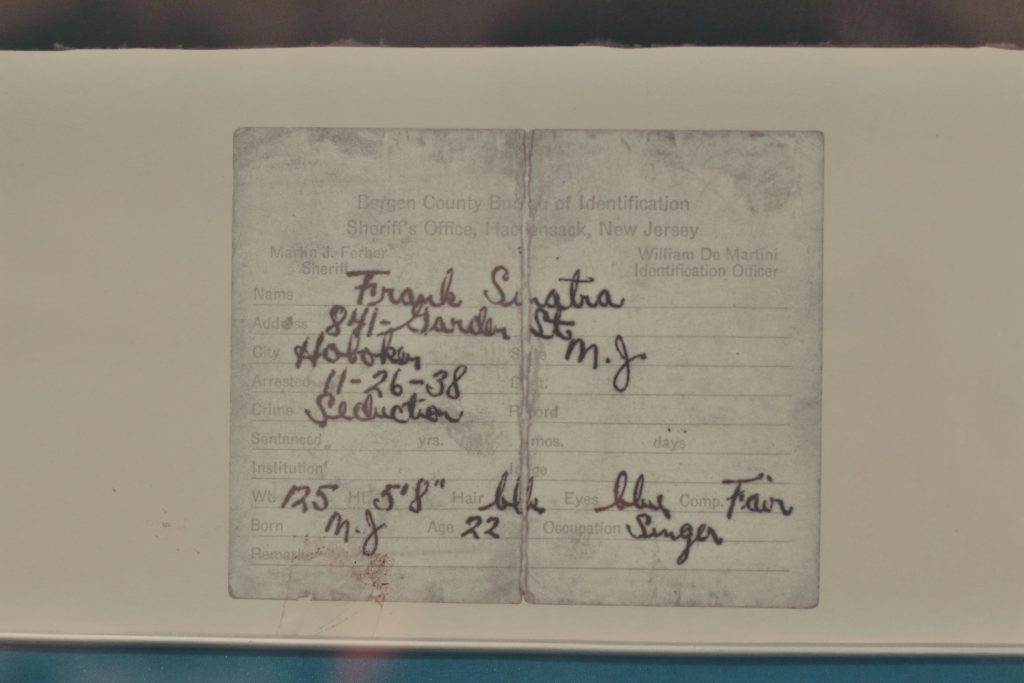 Bergen County Bureau of Identification
Sheriff's Office, Hackensack, New Jersey
Martin J. Ferber William De Martini
Sheriff Identification Officer
Name Frank Sinatra
Address 841-Garden St
City Hoboken State N.J.
Arrested 11-26-38 Dept.
Crime Seduction Record
Sentenced yrs. mos. days
Institution Judge
Wt. 125 Ht. 5'8" Hair blk Eyes blue Comp. Fair
Born N.J Age 22 Occupation Singer
Remarks